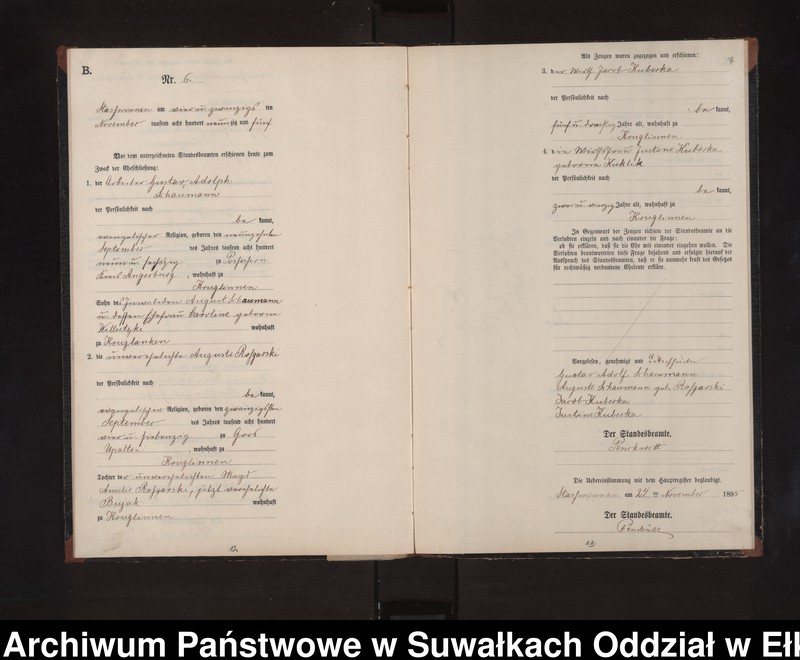 B.
Nr. 6.
am vier u. zwanzigs ten
November tausend acht hundert neunzig und fünf
Vor dem unterzeichneten Standesbeamten erschienen heute zum
Zweck der Eheschließung:
1. der Arbeiter Gustav, Adolph
Schaumann
der Persönlichkeit nach
be kannt,
evangelischer Religion, geboren den neunzehnten
September des Jahres tausend acht hundert
neun u. sechszig zu Possessern
Kreis Angerburg, wohnhaft zu
Kruglinnen
Sohn des Invaliden August Schaumann
u. dessen Ehefrau Caroline geborene
wohnhaft
zu Kruglanken
2. die unverehelichte Auguste Rossarski
der Persönlichkeit nach
be kannt,
evangelischer Religion, geboren den zwanzigsten
September des Jahres tausend acht hundert
vier u. siebenzig zu Gross
Upalten, wohnhaft zu
Kruglinnen
Tochter der unverehelichten Magd
Amalie Rossarski, jetzt verehelichte
Bujak wohnhaft
zu Kruglinnen
12.
Als Zeugen waren zugezogen und erschienen:
7
3. der Wirth Jacob Kuberka
der Persönlichkeit nach
be kannt,
fünf u. dreißig Jahre alt, wohnhaft zu
Kruglinnen
4. die Wirthsfrau Justine Kuberka
geborene Kuklik
der Persönlichkeit nach
be kannt,
zwei u. vierzig Jahre alt, wohnhaft zu
Kruglinnen
In Gegenwart der Zeugen richtete der Standesbeamte an die
Verlobten einzeln und nach einander die Frage:
ob sie erklären, daß sie die Ehe mit einander eingehen wollen. Die
Verlobten beantworteten diese Frage bejahend und erfolgte hierauf der
Ausspruch des Standesbeamten, daß er sie nunmehr kraft des Gesetzes
für rechtmäßig verbundene Eheleute erkläre.
Vorgelesen, genehmigt und unterschrieben
Gustav Adolf Schaumann
Auguste Schaumann geb. Rossarski
Jacob Kuberka
Justine Kuberka
Der Standesbeamte.
Die Uebereinstimmung mit dem Hauptregister beglaubigt.
am 24 ten November 1895
Der Standesbeamte.
13
Archiwum Państwowe w Suwałkach Oddział w Ełk